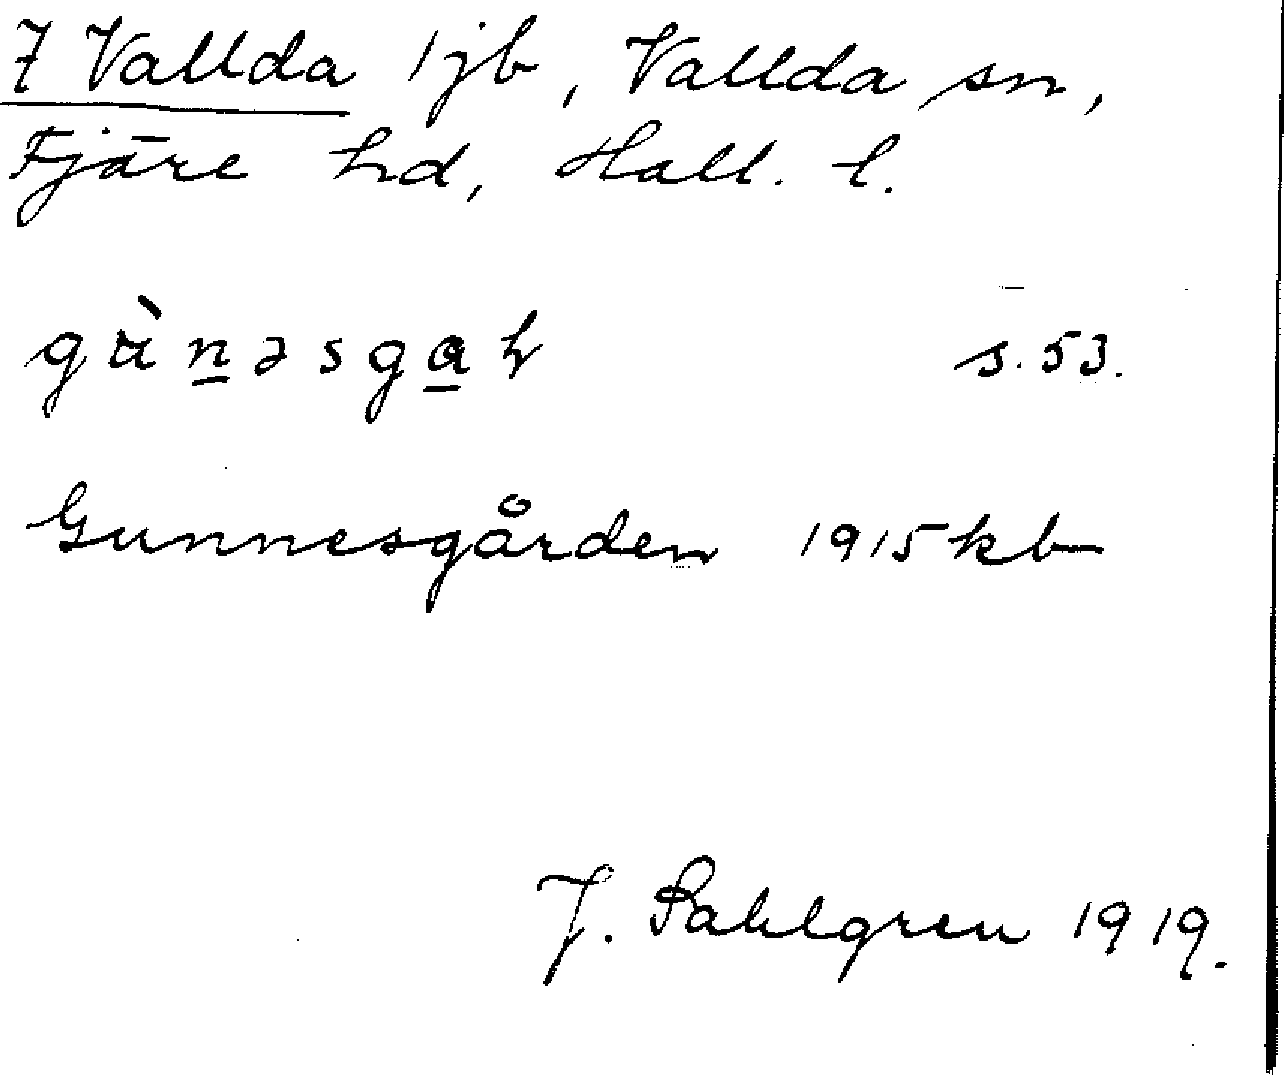 7 Vallda 1 jb, Vallda sn,
Fjäre hd, Hall. l.
s. 53.
Gunnesgården 1915 kb
J. Sahlgren 1919.